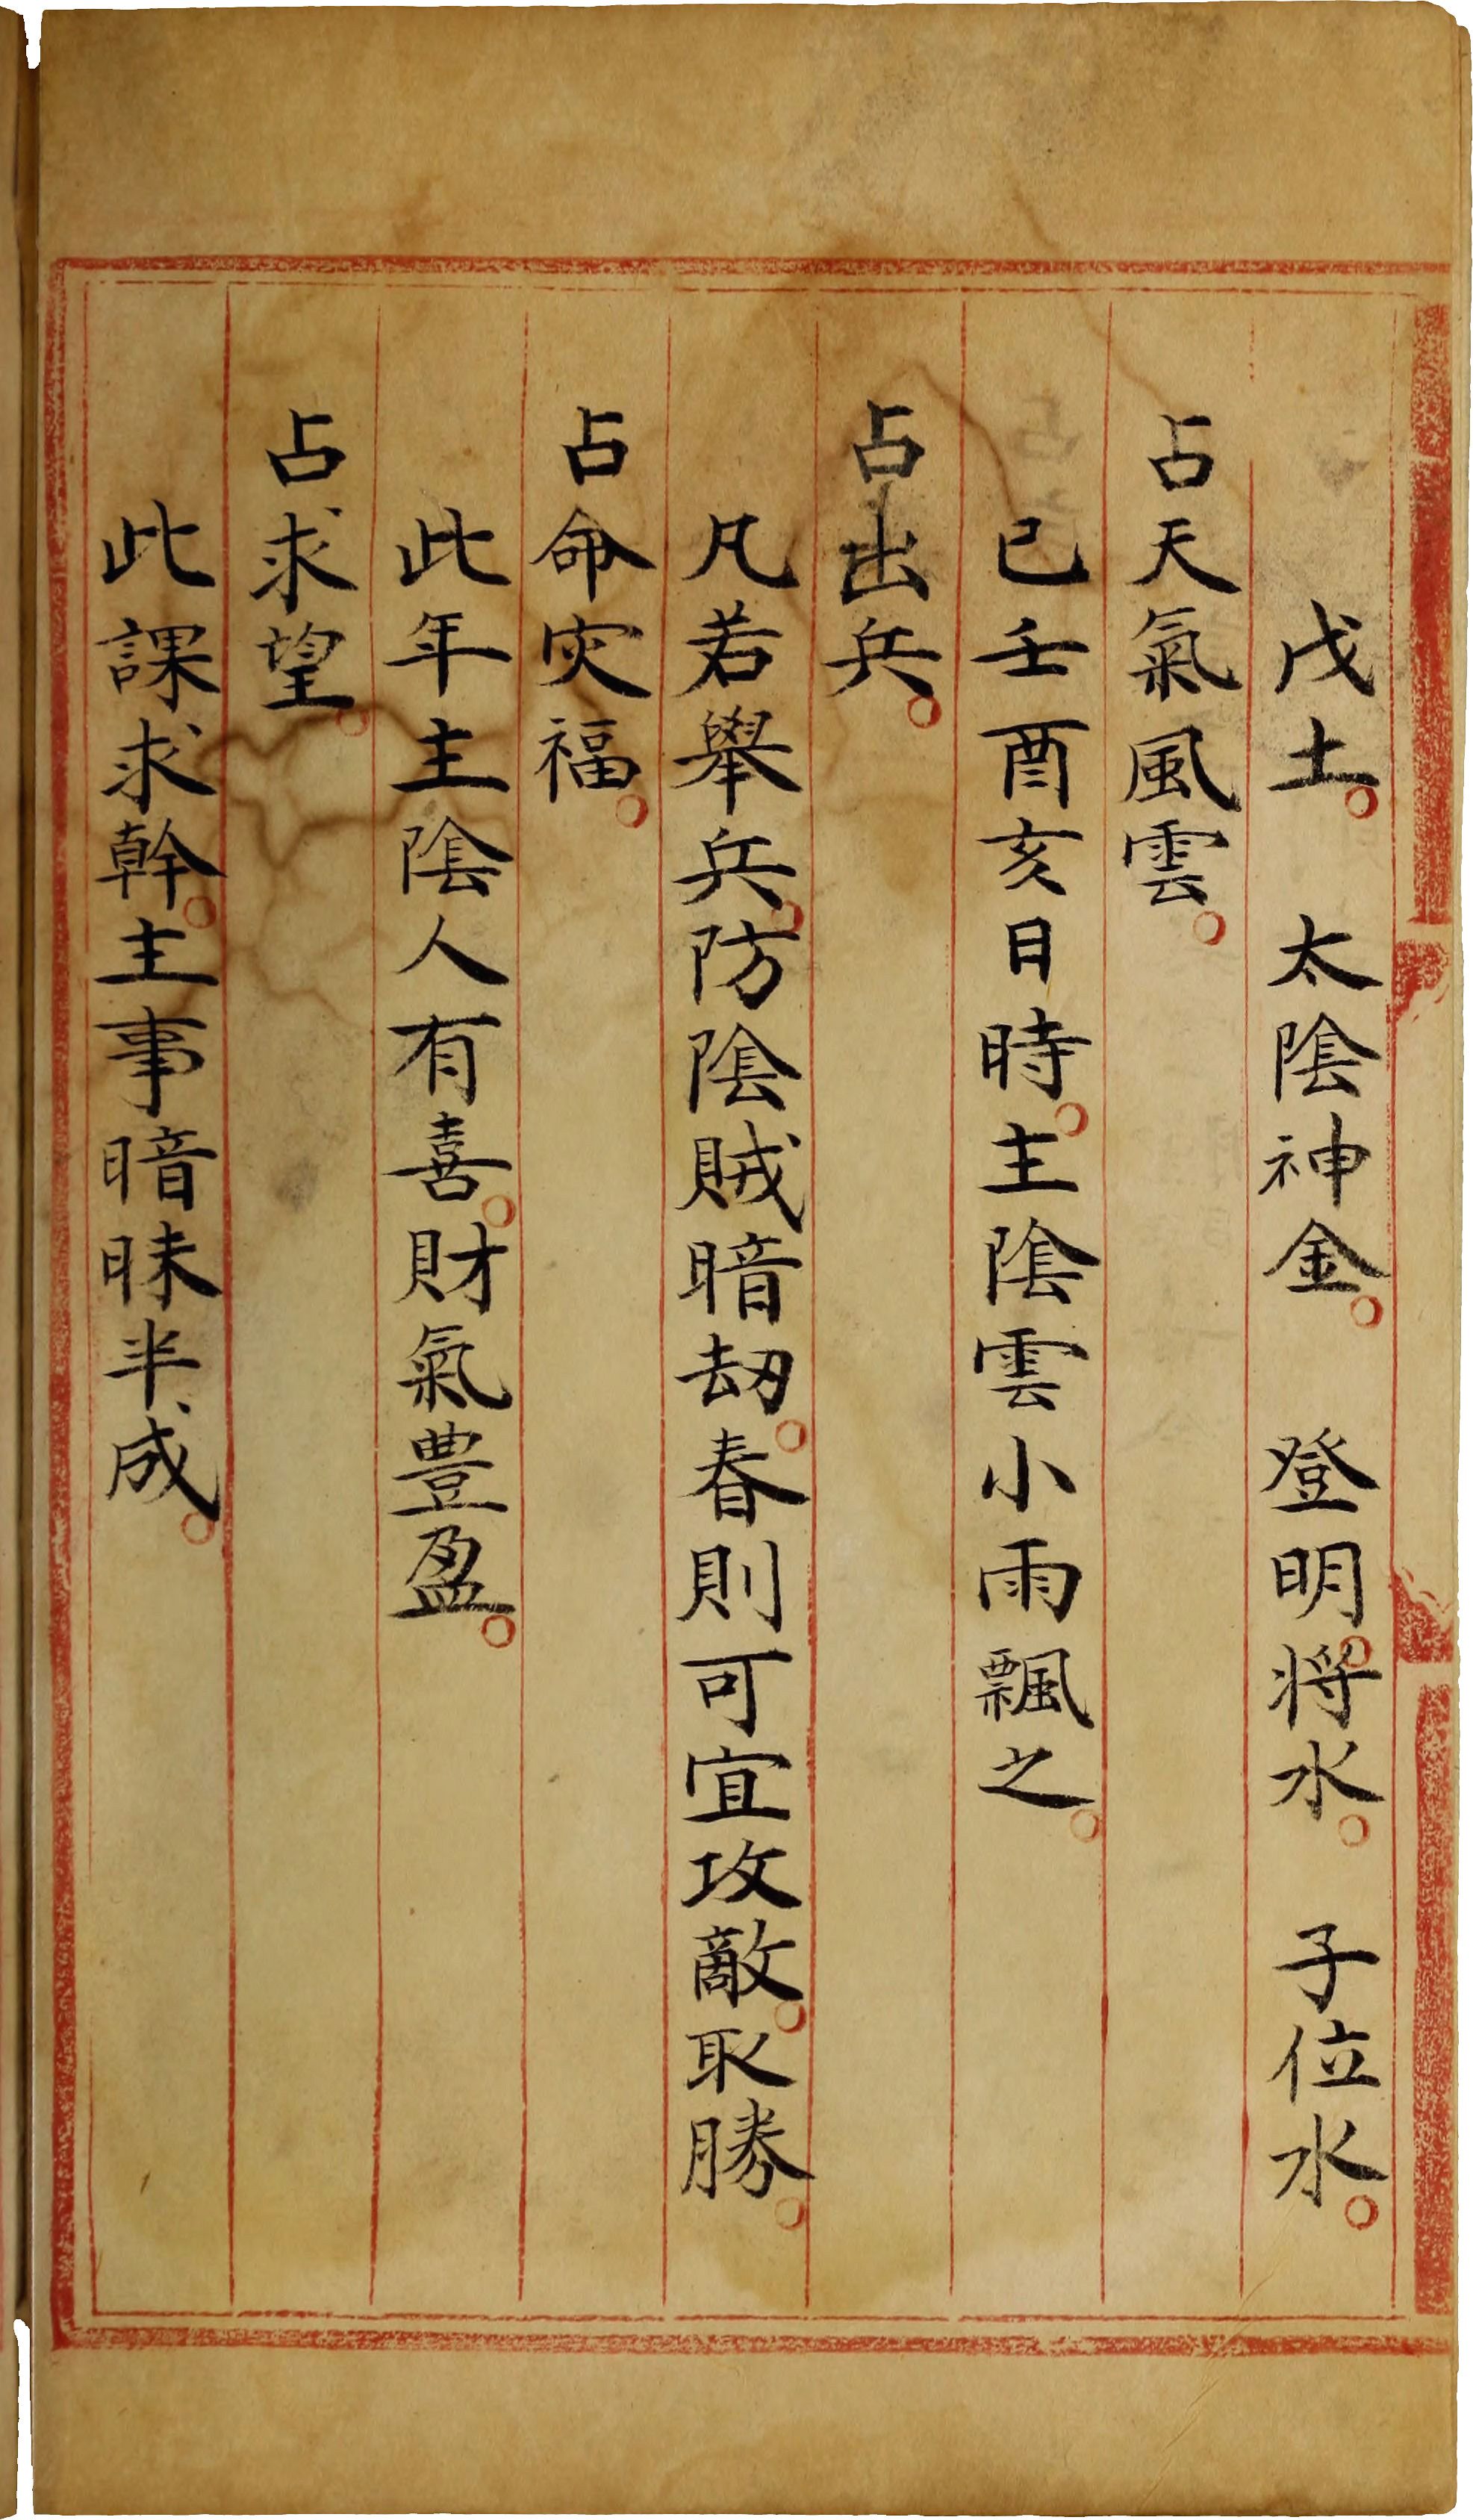 戊土。　太陰神金。　登明。將水。　子位水。
占天氣風雲。
已壬酉亥日時。主陰雲小雨飄之。
占出兵。
凡若舉兵。防陰賊暗刼。春則可宜攻敵。取勝。
占命灾福。
此年主陰人有喜。財氣豊盈。
占求望。
此課求幹。主事暗昧半成。